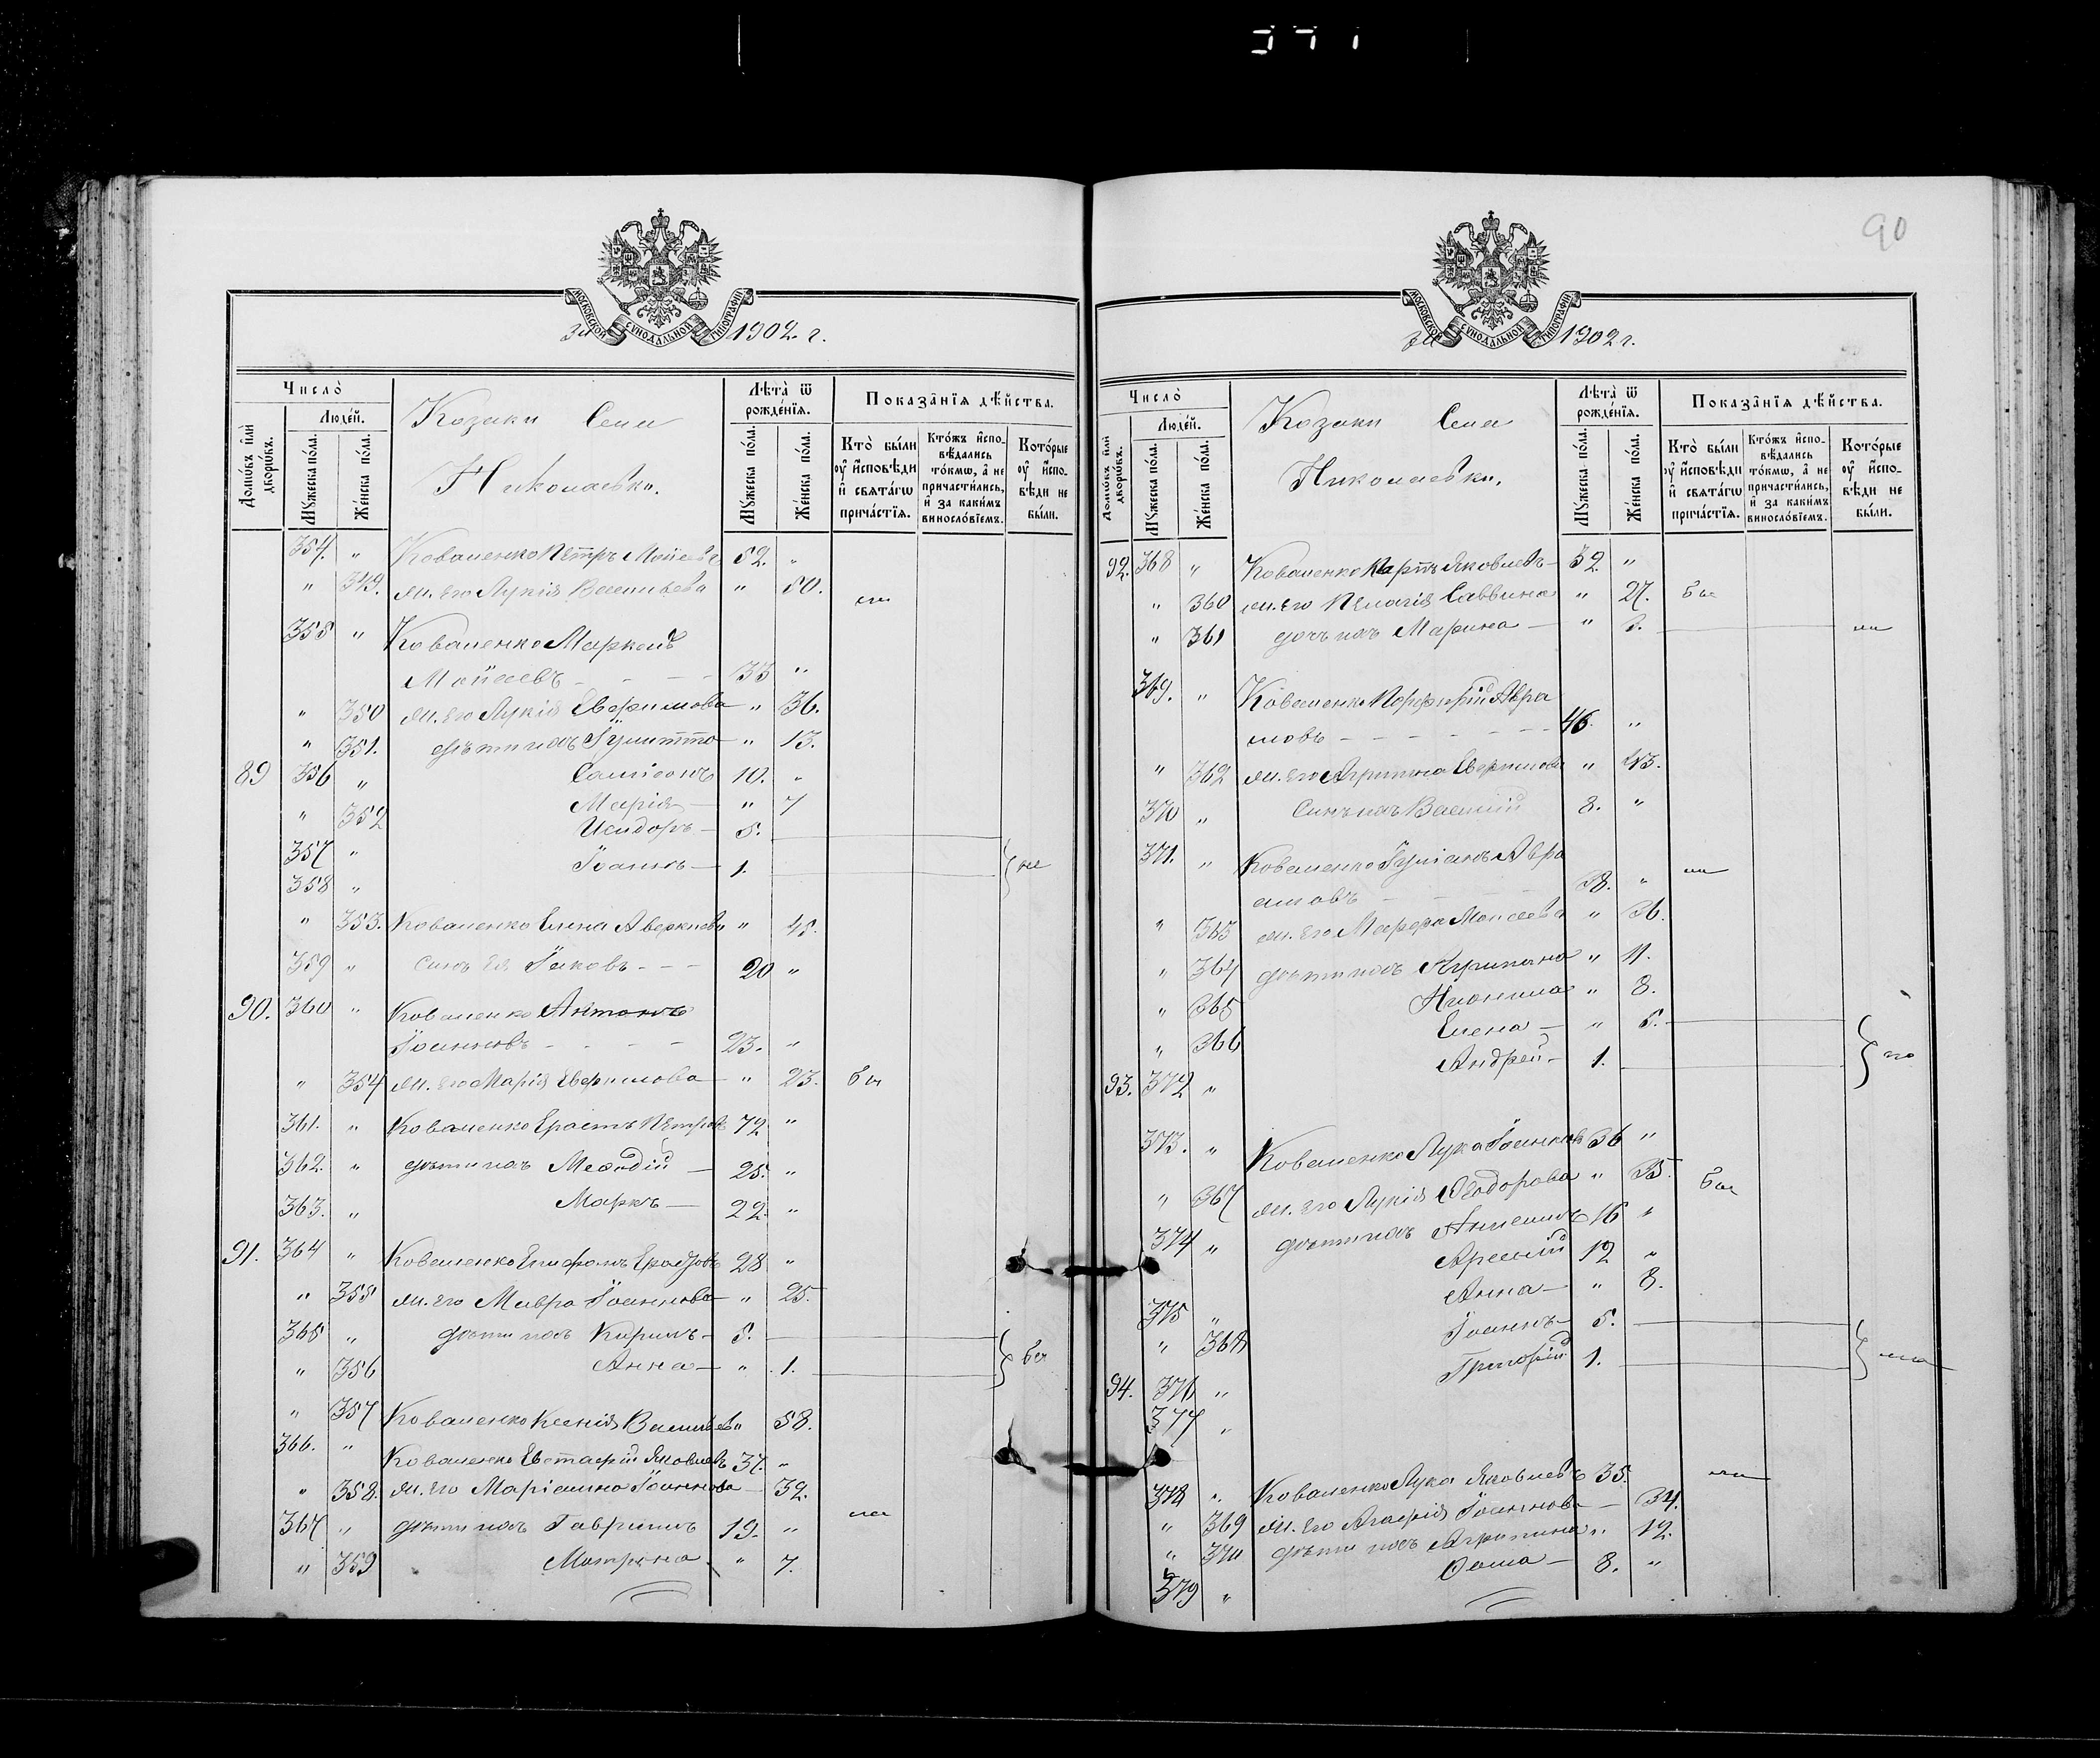 90
МОСКОВСКОЙ СѴНОДАЛЬНОЙ ТИПОГРАФІИ
за 1902 г.
Число̀
Люде́й.
Домѡ́въ и҆лѝ дворѡ́въ.
Мꙋ́жеска по́ла.
Же́нска по́ла.
Козаки Села
Николаевки.
Лѣ́та ѿ рожде́нїѧ.
Мꙋ́жеска по́ла.
Же́нска по́ла.
Показа̑нїѧ дѣ́йства.
Кто̀ бы́ли
ᲂу҆ и҆сповѣ́ди
и҆ свѧта́гѡ
прича́стїѧ.
Кто́жъ и҆спо-
вѣ́дались
то́кмѡ, а҆ не
причасти́лись,
и҆ за каки́мъ
виносло́вїемъ.
Кото́рые
ᲂу҆ и҆спо-
вѣ́ди не
бы́ли.
354. " Коваленко Петръ Моисеевъ 52. "
" 349. ж. его Лукія Васильева " 50.
355 " Коваленко Маркелъ
Моисеевъ - - - - 33 "
" 350 ж. его Лукія Евфимова " 36.
" 351. дѣти ихъ Іулитта " 13.
89 356 " Сампсонъ 10. "
" 352 Марія — " 7
357 " Исидоръ — 5.
358 " Іоаннъ — 1.
" 353. Коваленко Елена Аверкіева " 45.
359 " сынъ ея Іаковъ - - - 20 "
90. 360 " Коваленко Антонъ
Іоанновъ - - - - 23. "
" 354 ж. его Марія Евфимова — " 23.
361. " Коваленко Ерастъ Петровъ 72 "
362. " дѣти ихъ Меѳодій — 25. "
363. " Маркъ — 22. "
91. 364 " Коваленко Епифанъ Ерастовъ 28 "
" 355 ж. его Мавра Іоаннова — " 25.
365 " дѣти ихъ Кирилъ — 5.
" 356 Анна — " 1.
" 357 Коваленко Ксенія Васильева " 58.
366. " Коваленко Евстафій Яковлевъ 37. "
" 358. ж. его Маріамна Іоаннова — 32.
367 " дѣти ихъ Гавріилъ 19. "
" 359 Матрона " 7.
МОСКОВСКОЙ СѴНОДАЛЬНОЙ ТИПОГРАФІИ
за 1902 г.
Число̀
Люде́й.
Домѡ́въ и҆лѝ дворѡ́въ.
Мꙋ́жеска по́ла.
Же́нска по́ла.
Козаки Села
Николаевки.
Лѣ́та ѿ рожде́нїѧ.
Мꙋ́жеска по́ла.
Же́нска по́ла.
Показа̑нїѧ дѣ́йства.
Кто̀ бы́ли
ᲂу҆ и҆сповѣ́ди
и҆ свѧта́гѡ
прича́стїѧ.
Кто́жъ и҆спо-
вѣ́дались
то́кмѡ, а҆ не
причасти́лись,
и҆ за каки́мъ
виносло́вїемъ.
Кото́рые
ᲂу҆ и҆спо-
вѣ́ди не
бы́ли.
92. 368 " Коваленко Карпъ Яковлевъ — 32. "
" 360 ж. его Пелагія Саввина " 27.
" 361 дочь ихъ Марина — "
369. " Коваленко Порфирій Авра
мовъ - - - - - 46. "
" 362 ж. его Агрипина Евфимова " 43.
370 " Сынъ ихъ Василій 8. "
371. " Коваленко Іуліанъ Авра
амовъ - - - 38. "
" 363 ж. его Марфа Моисеева " 36.
" 364 дѣти ихъ Акрипина " 11.
" 365 Неонила " 8.
" 366 Елена — " 5.
93. 372 " Андрей — 1.
373. " Коваленко Лука Іоанновъ 36 "
" 367 ж. его Лукія Ѳеодорова " 35.
374 " дѣти ихъ 16 "
Арсеній 12 "
375 " Анна — " 8.
" 368 Іоаннъ — 5.
94. 376 " Григорій 1.
377 "
378 " Коваленко Лука Яковлевъ 35.
" 369 ж. его Агафія Іоаннова — 34.
" 370 дѣти ихъ Агрипина " 12.
379 " Ѳома — 8. "